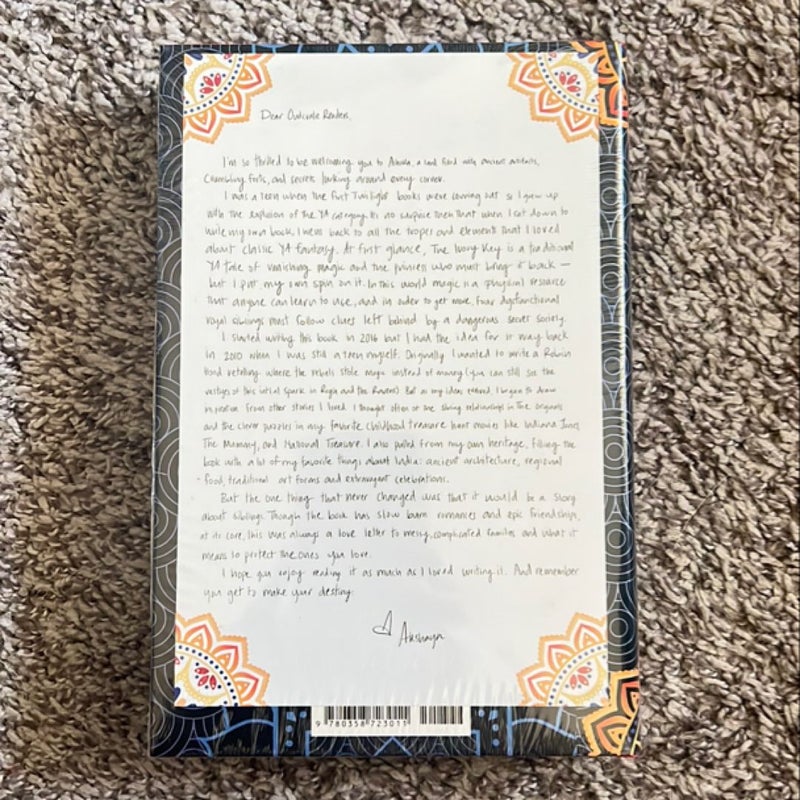 Dear Owlcrate Readers,
I'm so thrilled to be welcoming you to Ashoka, a land filled with ancient artifacts,
Crumbling forts, and secrets lurking around every corner.
I was a teen when the first Twilight books were coming out so I grew up
with the explosion of the YA category. It's no surprise then that when I sat down to
write my own book, I went back to all the tropes and elements that I loved
about classic YA fantasy. At first glance, The Ivory Key is a traditional
YA tale of vanishing magic and the princess who must bring it back —
but I put my own spin on it. In this world magic is a physical resource
that anyone can learn to use, and in order to get more, four dysfunctional
royal siblings must follow clues left behind by a dangerous secret society.
I started writing this book in 2016 but I had the idea for it way back
in 2010 when I was still a teen myself. Originally I wanted to write a Robin
Hood retelling where the rebels stole magic instead of money (you can still see the
vestiges of this initial spark in Ronak and the Ravens). But as my ideas evolved, I began to draw
inspiration from other stories I loved. I thought often of the sibling relationships in The Originals
and the clever puzzles in my favorite childhood treasure hunt movies like Indiana Jones,
The Mummy, and National Treasure. I also pulled from my own heritage, filling the
book with a lot of my favorite things about India: ancient architecture, regional
food, traditional art forms and extravagant celebrations.
But the one thing that never changed was that it would be a story
about siblings. Though the book has slow burn romances and epic friendships,
at its core, this was always a love letter to messy, complicated families and what it
means to protect the ones you love.
I hope you enjoy reading it as much as I loved writing it. And remember
you get to make your destiny.
Akshaya
9 780358 723011